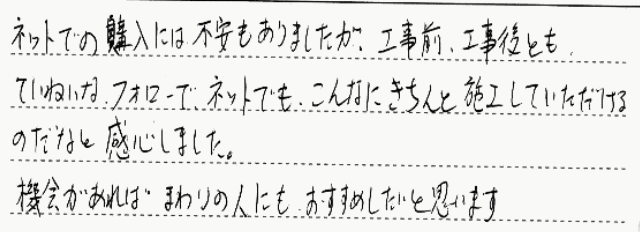 ネットでの購入には不安もありましたが、工事前、工事後とも、
ていねいな、フォローで、ネットでも、こんなにきちんと施工していただける
のだなと感心しました。
機会があれば まわりの人にも、おすすめしたいと思います